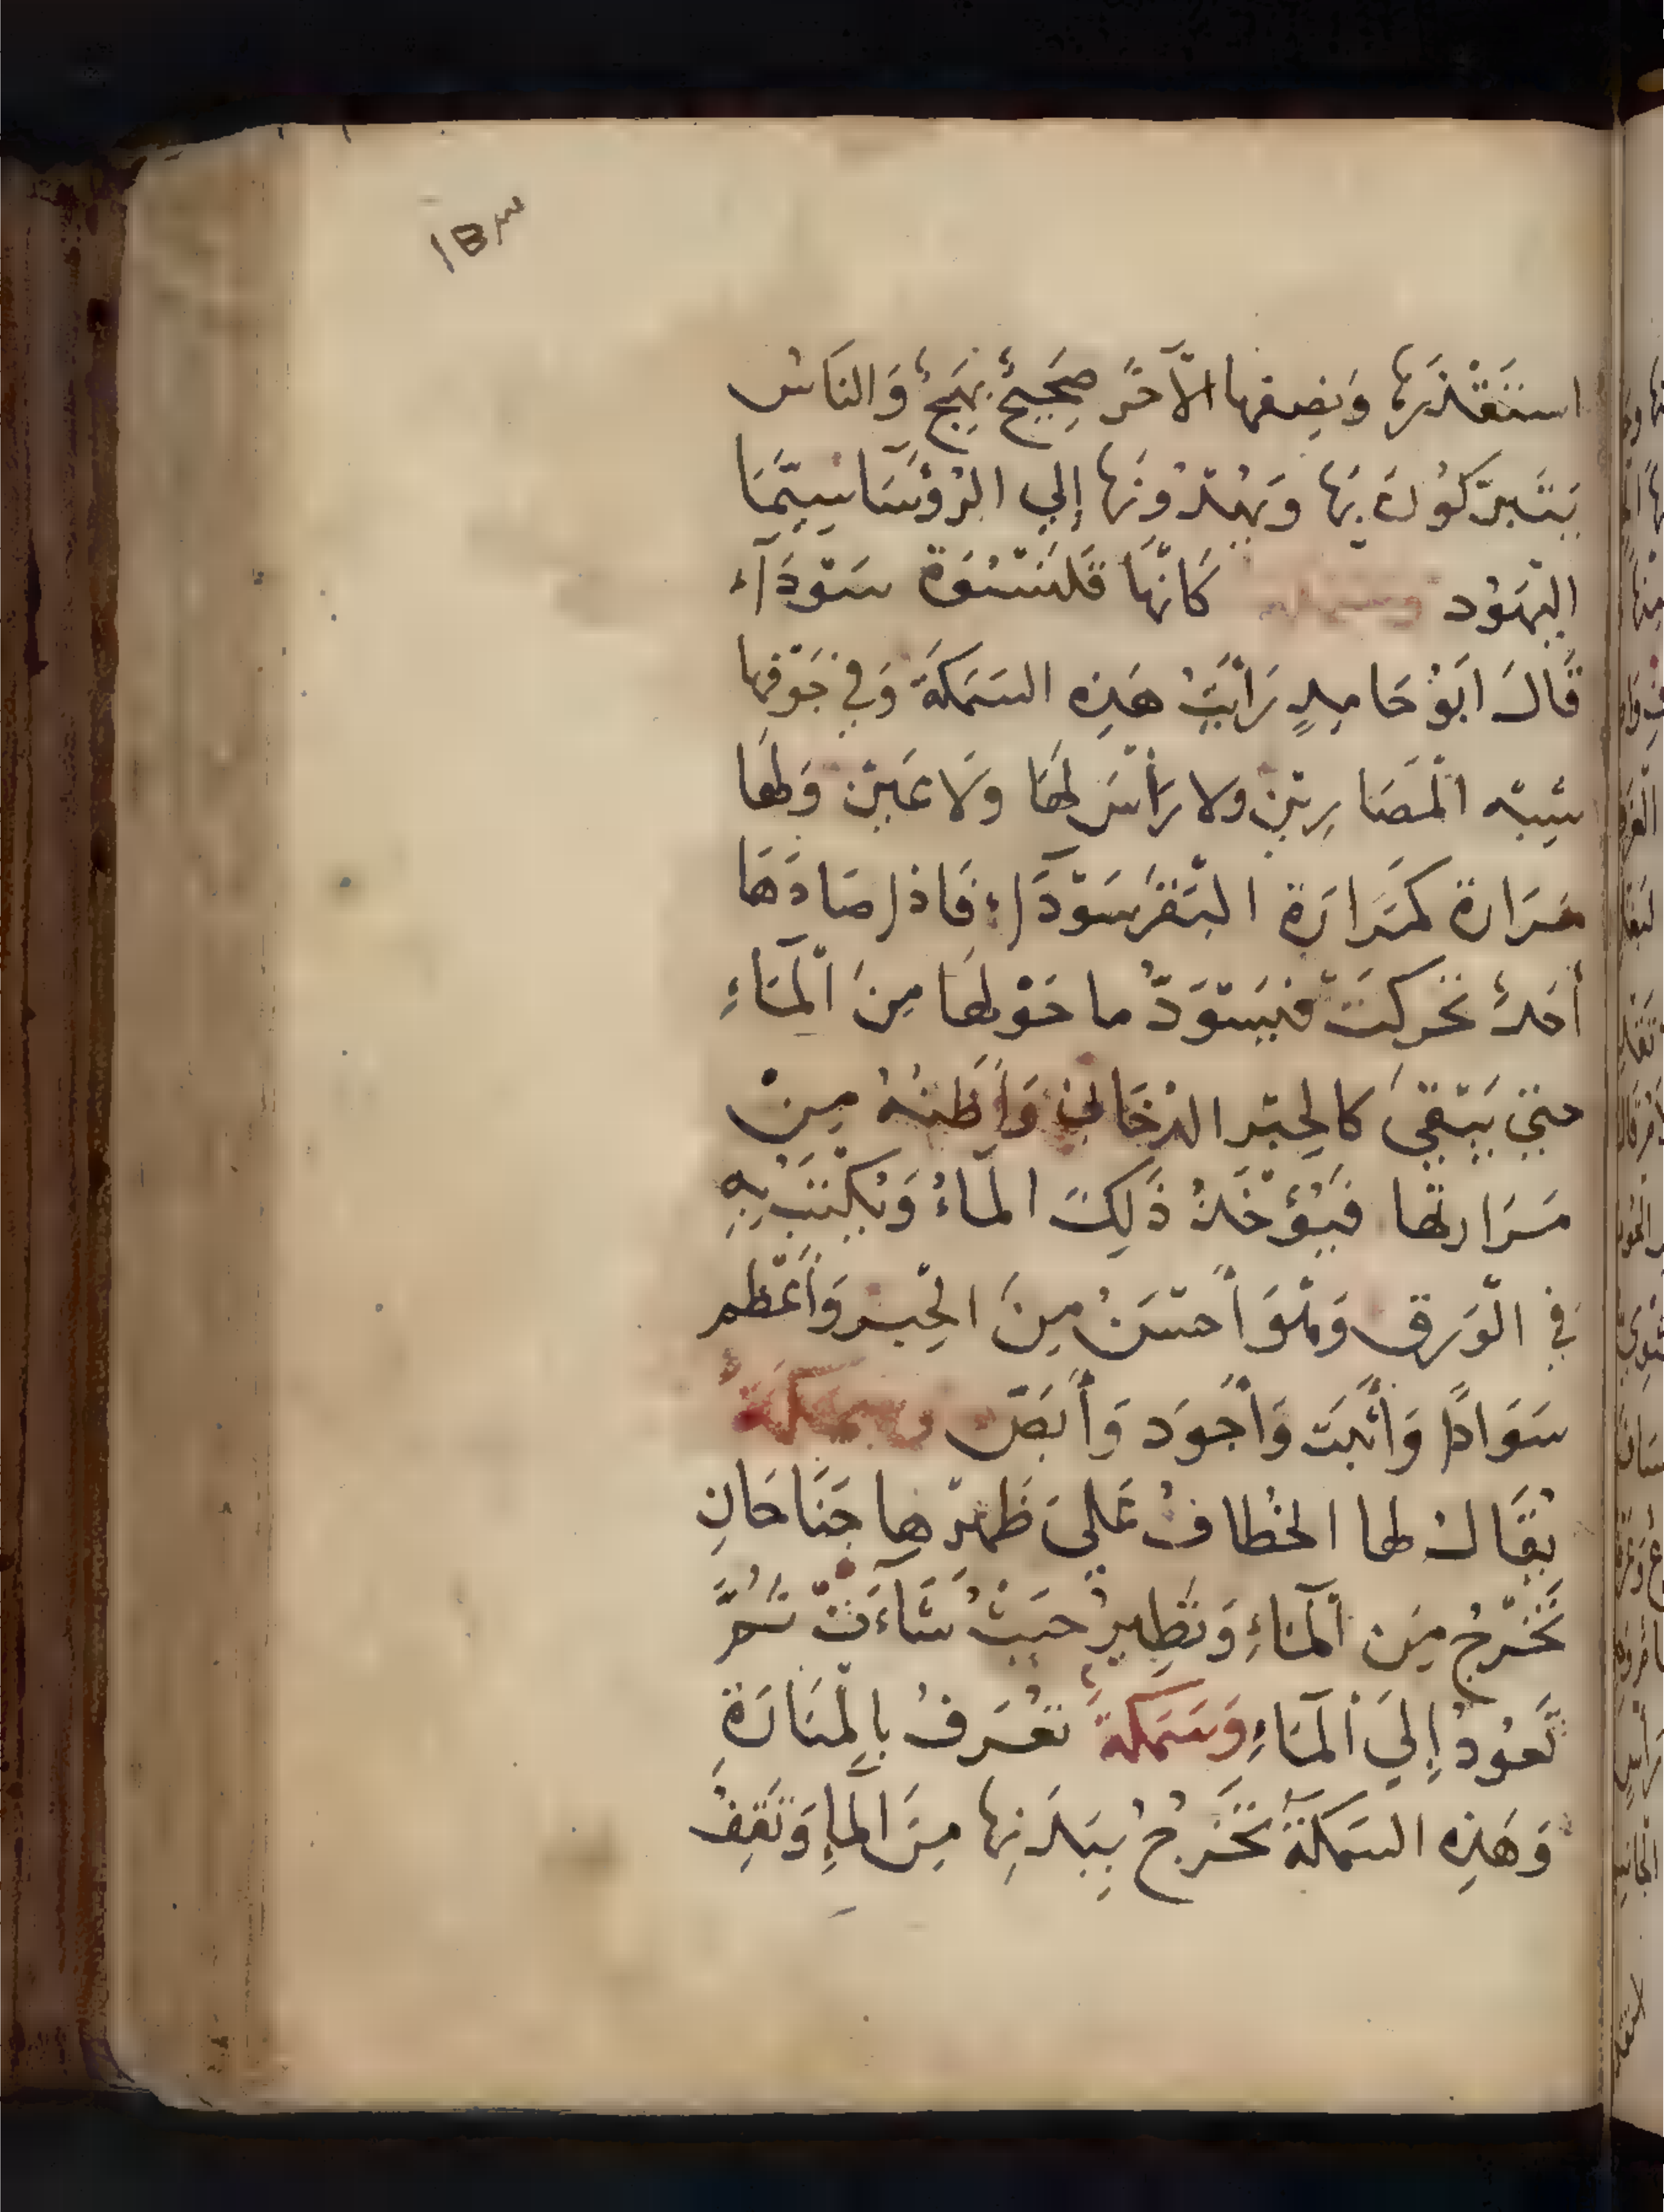 ١٥٣
استَقْذَرَهَا وَنِصفها الآخَر صَحِيحٌ بَهِيجٌ وَالنَاسُ
يَتَبرَّكُونَ بِهَا وَيَهْدُونَهَا إلي الرُؤسَا سِيَّمَا
اليَهُود وسمكة كَأنَّهَا قَلَنْسُوَة سَوْدَاء
قَالَ ابَوُ حَامِدٍ رَأيْتُ هَذِه السَمَكَة وَفِي جَوْفِها
شِبْه المَصَارِيْن ولا رَأسَ لَهَا وَلَا عَيْن وَلَهَا
مَرَارة كَمَرَارَة البَقَر سَوْدَاء فَاذا صَادَهَا
أحَدٌ تحَركَتْ فَيَسْوَدُّ ما حَوْلهَا مِنَ المَاءِ
حتي يَبْقَي كالحِبْر الدخَاني وَأظنهُ مِنْ
مَرَارتها فَيُؤخَذُ ذَلِكَ المَاءُ وَيُكْتَبُ بِهِ
فِي الوَرَق وَهُوَ أحْسَنُ مِنَ الحِبْر وَأعْظم
سَوَادًا وَأثْبَتَ وَأجْوَد وَأبَصّ وسمكَةٌ
يُقَالُ لها الخُطافُ عَلَيَ ظَهْرِها جَنَاحَانِ
تَخْرُجُ مِنَ المَاءِ وَتَطِيرُ حَيثُ شَاءَتْ ثُمَّ
تَعُودُ إِليَ المَاءِ وَسَمَكَة تعُرَفُ بِالمَنَارَةِ
وَهَذِه السَمَكَة تَخْرُجُ بِبَدَنِها مِنَ المَاءِ وَتَقِفُ